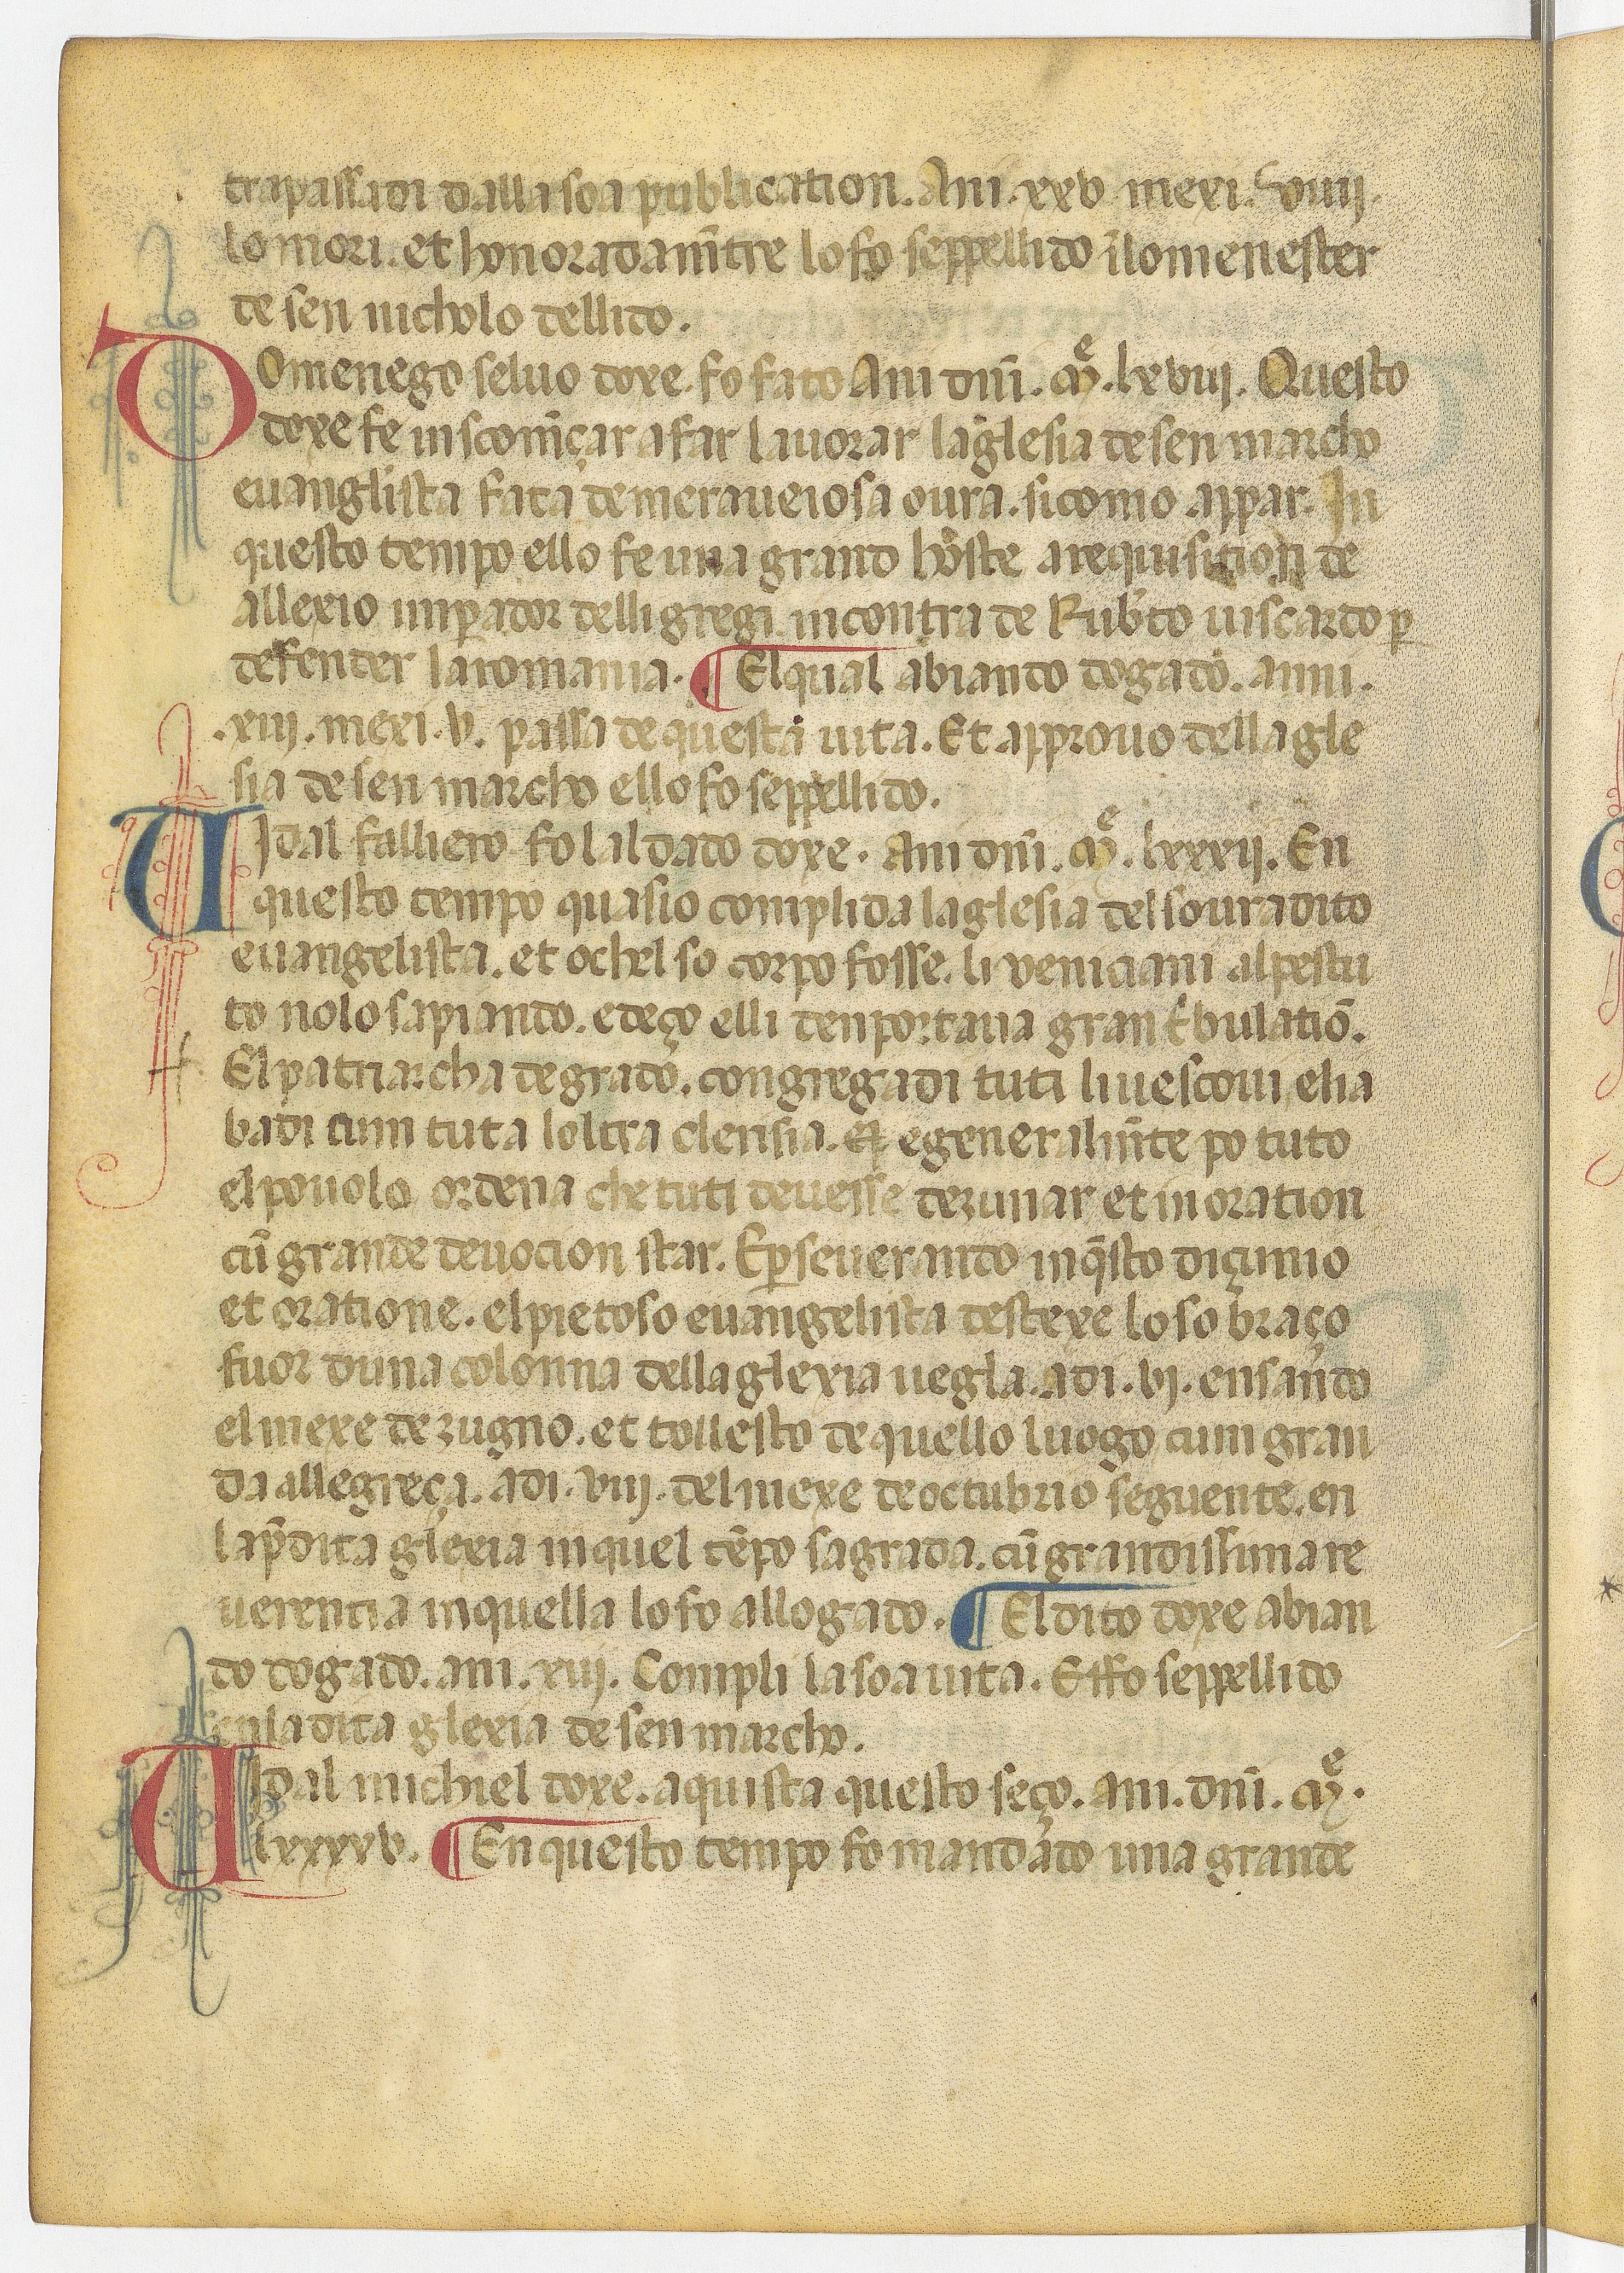 trapassadi dalla soa publication. Ani. xxv mexi. viiij.
lo mori. et honoradam̄tre lo fo seppellido ī lo menester
de sen nicholo dellido.
Domenego seluo doxe. fo fato Ani dn̄i. Mͤ. lxviij. Questo
doxe fe inscom̄çar a far lauorar la glesia de sen marcho
euanglista fata de meraueiosa oura. si como appar. In
questo tempo ello fe una grand hoste a requisition de
allexio imꝑador delli gregi incontra de Rub̄to uiscardo ꝑ
defender la romania. ¶ El qual abiando dogado. anni.
.xiij. mexi. v. passa de questa uita. Et approuo della gle
sia de sen marcho ello fo seppellido.
Uidal falliero fo laldado doxe. Ani dn̄i. Mͤ. lxxxij. En
questo tempo quasio complida la glesia del souradito
euangelista. et o chel so corpo fosse. li veniciani al pestu
to no lo sapiando. e deço elli denportaua gran t̄bulatiō.
El patriarcha de grado. congregadi tuti li uescoui e li a
badi cum tuta loltra clerisia. e generalm̄te po tuto
el pouolo ordena che tuti deuesse dezunar et in oration
cū grande deuocion star. E ꝑseuerando in q̄sto diçunio
et oratione. el pietoso euangelista destexe lo so braço
fuor duna colonna della glexia uegla. adi. vj. ensando
el mexe de zugno. et tollesto de quello luogo cum gran
da allegreça. adi. viij. del mexe de octubrio seguente. en
la p̄dita glexia in quel tēpo sagrada. cū grandissima re
uerentia in quella lo fo allogado. ¶ El dito doxe abian
do dogado. ani. xiij. Compli la soa uita. E ffo seppellido
en la dita glexia de sen marcho.
Uidal michiel doxe. aquista questo seço. ani. dn̄i. Mͤ.
lxxxxv. ¶ En questo tempo fo mandado una grande